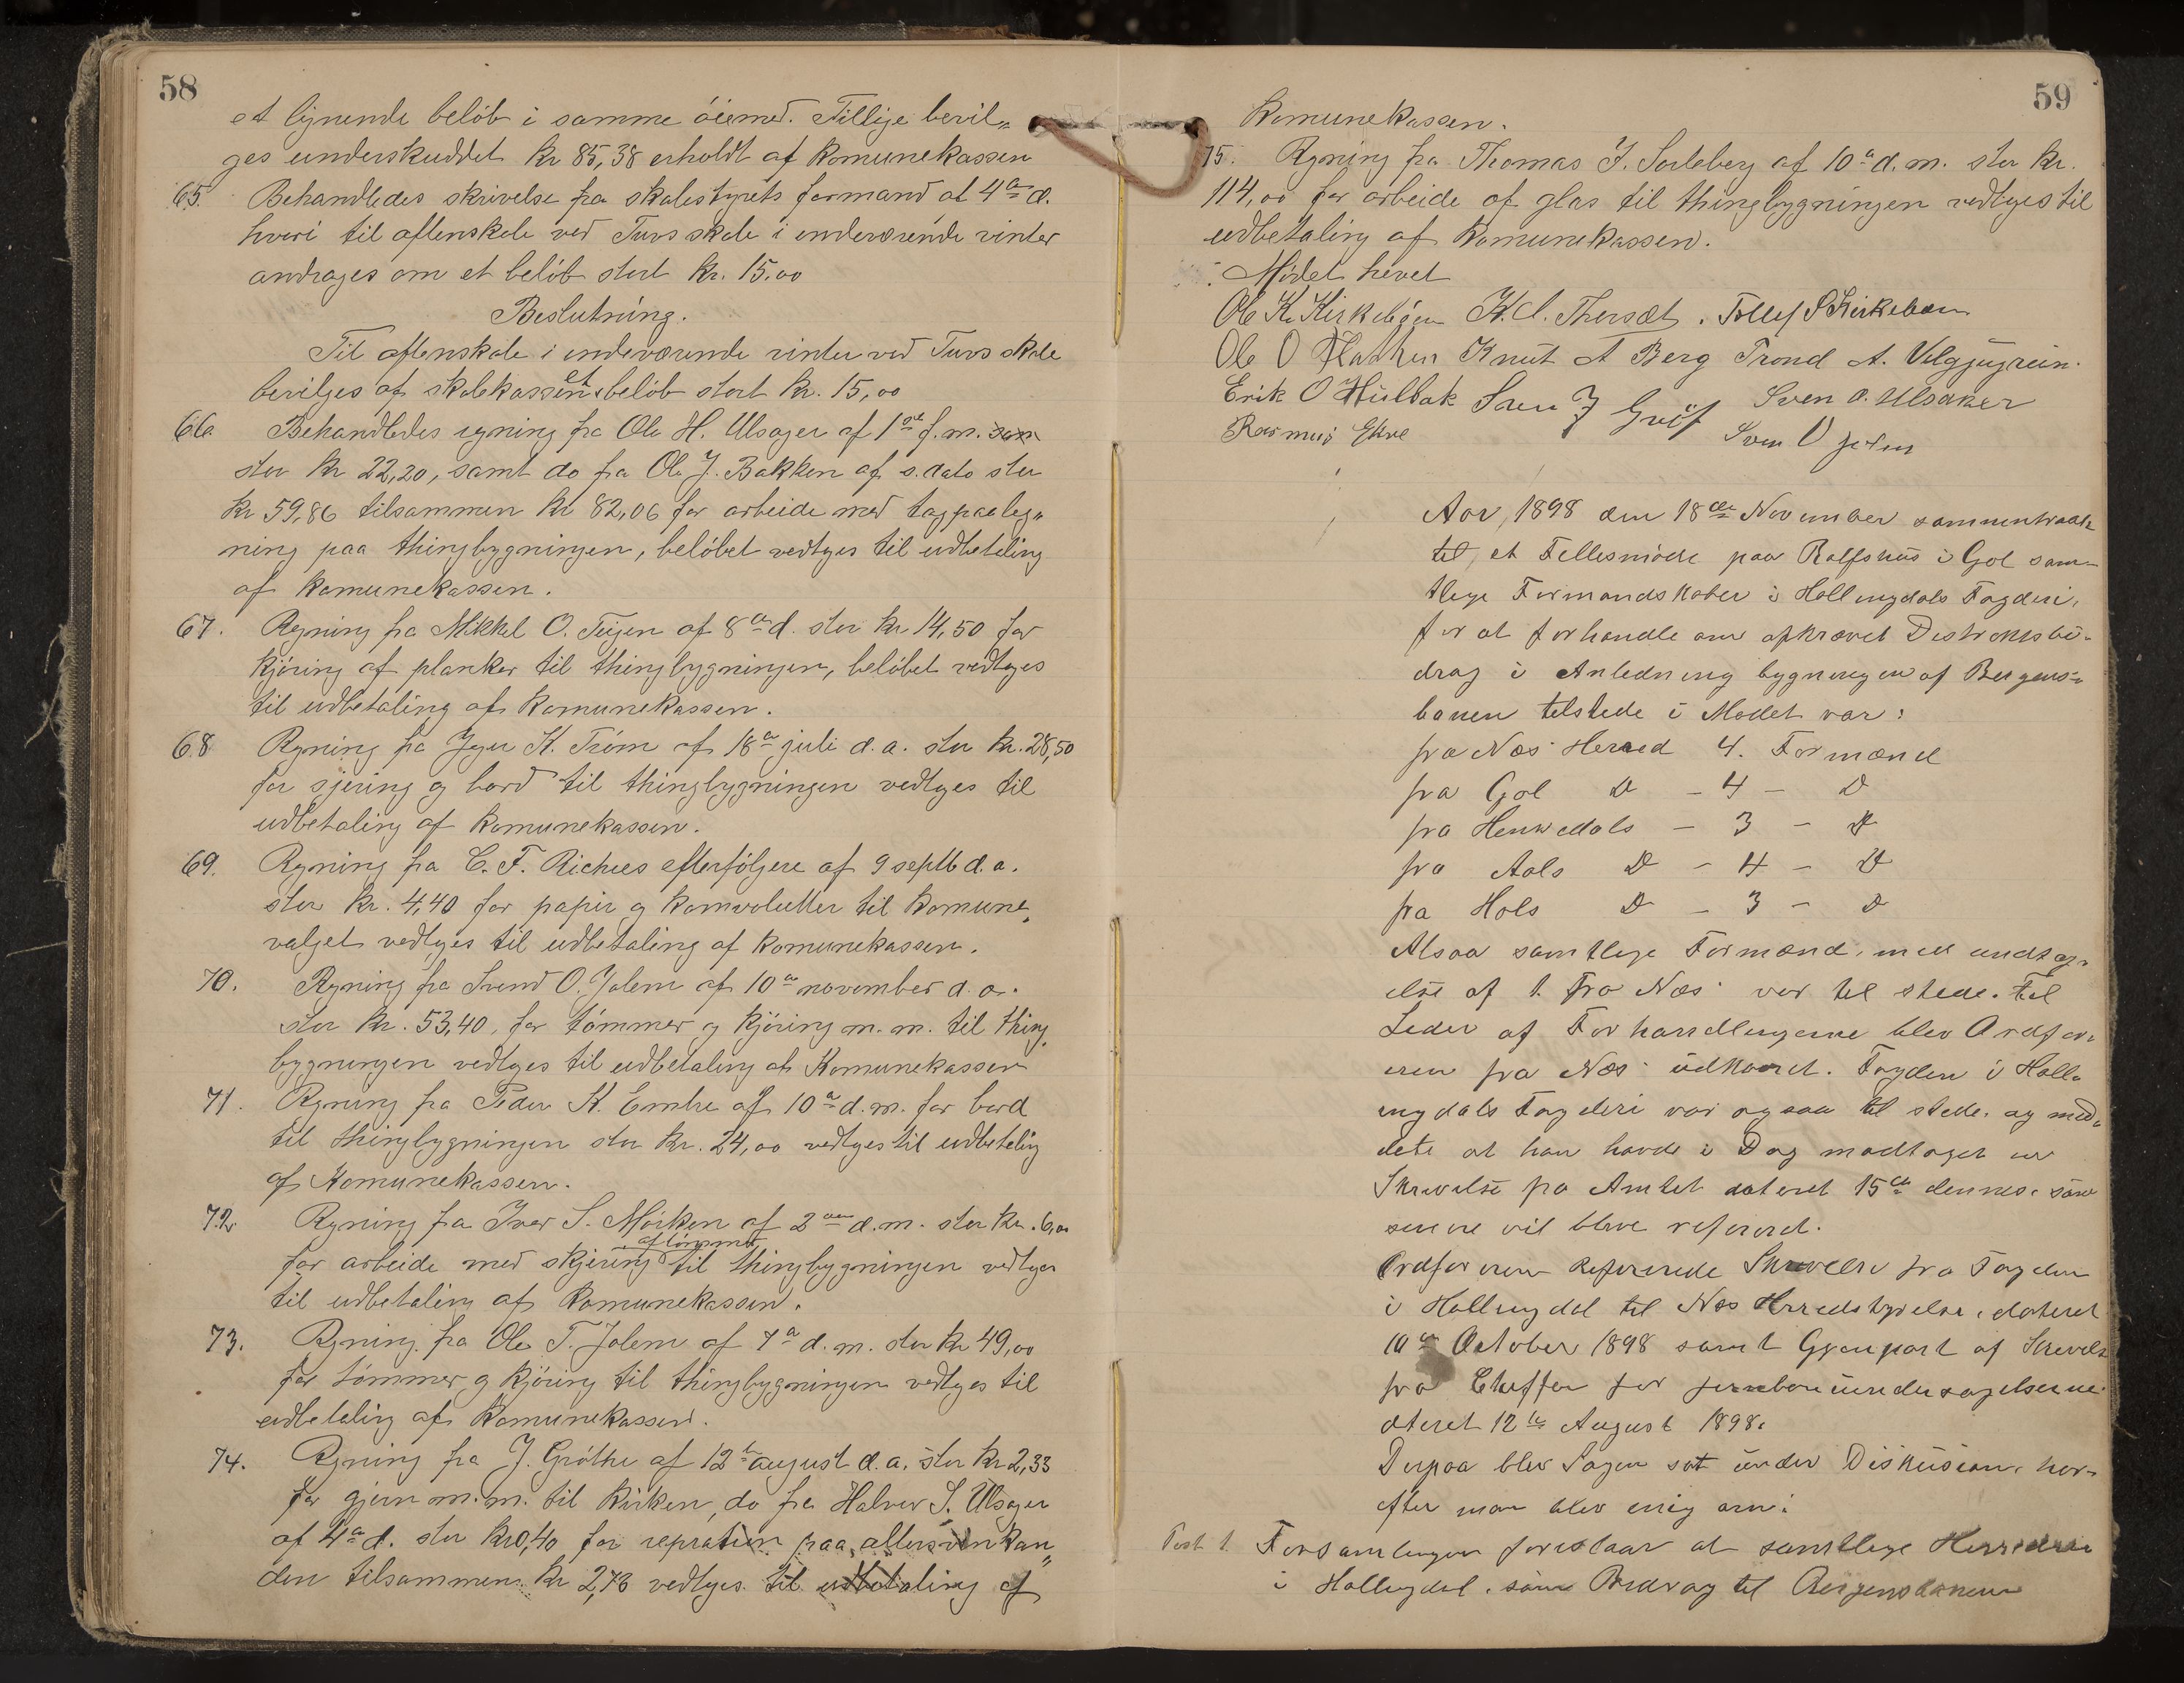 58
et lignende beløb i samme øiemed. Tillige bevil„
ges underskuddet kr 85,38 erholdt af komunekassen
65. Behandledes skrivelse fra skolestyrets formand af 4de d.
hvori til aftenskole ved Turs skole i endeværende vinter
andrages om et beløb stort kr. 15.00
Beslutning.
Til aftenskole i endeværende vinter ved Turs skole
bevilges af skolekassen et beløb stort kr. 15,00
66. Behandledes regning fra Ole H. Ulsager af 1ste f.m.
stor kr 22,20, samt do fra Ole J. Bakken af s. dato stor
kr 59,86 tilsammen kr 82,06 for arbeide med tagpaaleg„
ning paa thingbygningen, beløbet vedtges til udbetaling
af komunekassen.
67. Regning fra Mikkel O. Teigen af 8de d. stor kr 14,50 for
kjøring af planker til thingbygningen, beløbet vedtges
til udbetaling af komunekassen.
68 Regning fra K. Trøm af 18de juli d.a. stor kr. 28,50
for sjering og bord til thingbygningen vedtges til
udbetaling af komunekassen.
69. Regning fra C. F. efterfølgere af 9 septb d.a.
stor kr. 4,40 for papir og komvolutter til komune„
valget vedtges til udbetaling af komunekassen.
70. Regning fra Svend O. Jolem af 10de november d.a.
stor kr. 53,40, for tømmer og kjøring m.m. til thing„
bygningen vedtges til udbetaling af Komunekassen
71. Regning fra Peder K. af 10de d.m. for bord
til thingbygningen stor kr. 24,00 vedtges til udbetaling
af Komunekassen.
72. Regning fra Iver S. Mørken af 2den d.m. stor kr. 6,00
af tømmer
for arbeide med skjering til thingbygningen vedtges
til udbetaling af komunekassen.
73. Regning fra Ole T. Jolem af 7de d.m. stor kr 49,00
for tømmer og kjøring til thingbygningen vedtges til
udbetaling af komunekassen.
74. Regning fra J. Grøthe af 12te august d.a. stor kr 2,33
for gjern m.m. til kirken, do fra Halvor S. Ulsager
af 4de d. stor kr 0,40 for repration paa altervinkan„
den tilsammen kr 2,73 vedtges til udbetaling af
59
komunekassen.
75. Regning fra Thomas J. Sorteberg af 10de d.m. stor kr.
114,00 for arbeide af glas til thingbygningen vedtges til
udbetaling af komunekassen.
Mødet hevet
Ole K. Kirkebøen Tollef Kirkebøen
Ole O Knut A Berg Trond A.
Erik O Hulbak Sven J Sven O. Ulsaker
Rasmus Ekre Sven O Jolem
Aar 1898 den 18de November sammentraadte
til et Fellesmøde paa Rolfshus i Gol sam-
tlige Formandskaber i Hallingdals Fogderi,
for at forhandle om opkrævet Destriktsbi-
drag i Anledning bygningen af Bergens-
banen telstede i Mødet var:
fra Næs Hered 4. Formænd
fra Gol D - 4 - D
fra Hemsedals - 3 - D
fra Aals D - 4 - D
fra Hols D - 3 - D
Alsaa samtlige Formænd, med undtag-
else af 1. fra Næs var til stede. Til
Leder af Forhandlingerne blev Ordfør-
eren fra Næs udkaaret. Fogden i Hall-
ingdals Fogderi var ogsaa til stede. og med-
delte at han havde i Dag modtaget en
Skrivelse fra Amtet dateret 15de dennes. som
senere vil blive refereret.
Ordføreren Refererede Skrivelse fra Fogden
i Hallingdal til Næs Herredstyrelse. dateret
10de October 1898 samt Gjenpart af Skrivelse
fra Cheffen for jernbaneundersøgelserne
dateret 12te August 1898.
Derpaa blev Sagen sat under Diskusion, hor-
efter man blev enig om:
Post 1. Forsamlingen foreslaar at samtlige Herreder
i Hallingdal. som Bidrag til Bergensbanen